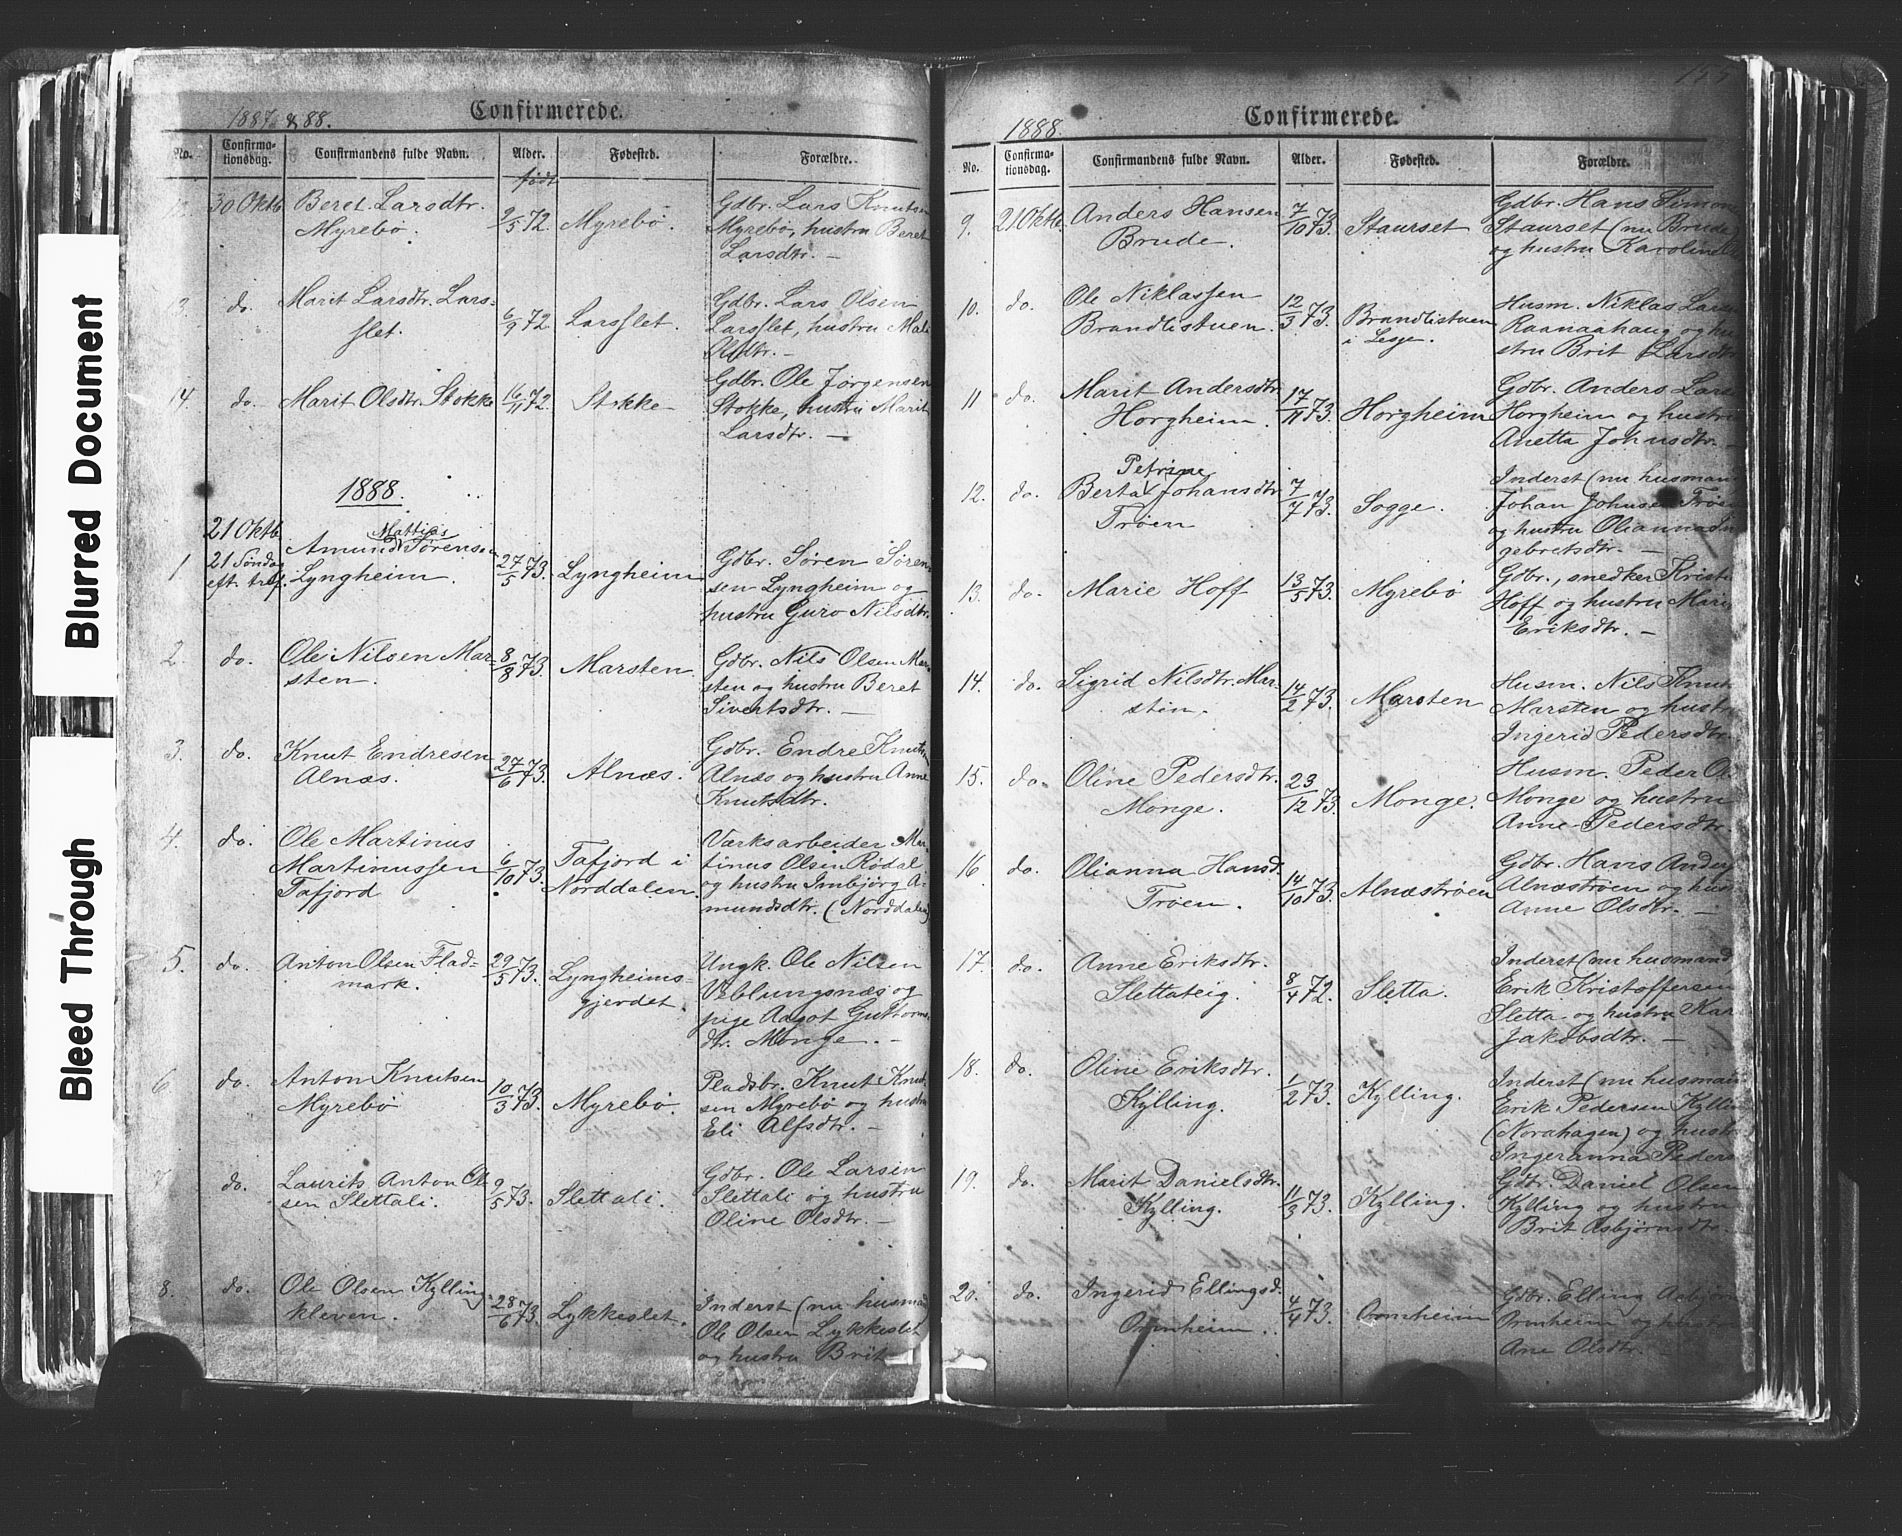 Blurred Document
Bleed Through
1887 & 88.
Confirmerede.
No.
Confirma-
tionsdag.
Confirmandens fulde Navn.
Alder.
Fødested.
Forældre.
født
30 Oktb.
Beret Larsdtr.
Myrebø.
2/5 72.
Myrebø.
Gdbr. Lars Knutsen
Myrebø, hustru Beret
Larsdtr. —
do.
Marit Larsdtr. Lars-
slet.
6/9 72
Larsslet.
Gdbr. Lars Olsen
Larsslet, hustru Mali
Olsdtr. —
14.
do.
Marit Olsdtr. Stokke
16/11 72.
Stokke
Gdbr. Ole Jørgensen
Stokke, hustru Marit
Larsdtr. —
1888.
1
21 Oktb.
21 Søndag
eft. tref.
Mattias
Amund Sørensen
Lyngheim.
27/5 73.
Lyngheim
Gdbr. Søren Søren-
sen Lyngheim og
hustru Guro Nilsdtr.
2.
do.
Ole Nilsen Mar-
sten.
8/8 73
Marsten
Gdbr. Nils Olsen Mar-
sten og hustru Beret
Sivertsdtr. —
3.
do.
Knut Endresen
Alnæs.
27/6 73.
Alnæs.
Gdbr. Endre Knuts.
Alnæs og hustru Anne
Knutsdtr.
4.
do.
Ole Martinus
Martinussen
Tafjord
6/10 73.
Tafjord i
Norddalen.
Værksarbeider Mar-
tinus Olsen Rødal
og hustru Imbjørg A-
mundsdtr. (Norddalen)
5.
do.
Anton Olsen Flad-
mark.
29/5 73.
Lyngheims-
gjerdet.
Ungk. Ole Nilsen
Veblungsnæs og
pige Aagot Guttorms-
dtr. Monge. —
6
do.
Anton Knutsen
Myrebø
10/3 73.
Myrebø.
Pladsbr. Knut Knut-
sen Myrebø og hustru
Eli Alfsdtr. —
7
do.
Laurits Anton Ol-
sen Slettali.
9/5 73.
Slettali.
Gdbr. Ole Larsen
Slettali og hustru
Oline Olsdtr. —
8.
do.
Ole Olsen Kylling-
kleven.
28/6 73
Lykkeslet.
Inderst (nu husmand)
Ole Olsen Lykkeslet
og hustru Brit
1888.
Confirmerede.
No.
Confirma-
tionsdag.
Confirmandens fulde Navn.
Alder.
Fødested.
Forældre.
9.
21 Oktb.
Anders Hansen
Brude.
7/10 73.
Staurset
Gdbr. Hans Simon
Staurset (nu Brude)
og hustru Karoline
10.
do.
Ole Niklassen
Brandlistuen.
12/3 73.
Brandlistuen
i Lesje.
Husm. Niklas Lars
Raanaahaug og hu-
stru Brit Larsdtr.
11
do.
Marit Andersdtr.
Horgheim.
17/11 73.
Horgheim
Gdbr. Anders Lars
Horgheim og hustru
Anetta Johnsdtr. —
12.
do.
Petrine
Berta Johansdtr.
Trøen
7/7 73.
Sogge.
Inderst (nu husman
Johan Johnsen Trøen
og hustru Olianna In-
gebretsdtr. —
13.
do.
Marie Hoff
13/5 73.
Myrebø
Gdbr., snedker Krist
Hoff og hustru Marit
Eriksdtr. —
14.
do.
Sigrid Nilsdtr. Mar-
stein.
14/2 73.
Marsten
Husm. Nils Knut
Marsten og hustru
Ingerid Pedersdtr.
15.
do.
Oline Pedersdtr.
Monge.
23/12 73
Monge.
Husm. Peder Ol
Monge og hustru
Anne Pedersdtr.
16
do.
Olianna Hansd.
Trøen.
14/10 73.
Alnæstrøen
Gdbr. Hans Anders
Alnæstrøen og hus
Anne Olsdtr. —
17.
do.
Anne Eriksdtr.
Slettateig.
8/4 72.
Sletta.
Inderst (nu husmand
Erik Kristoffersen
Sletta og hustru Kar
Jakobsdtr. —
18.
do.
Oline Eriksdtr.
Kylling.
1/2 73.
Kylling.
Inderst (nu husman
Erik Pedersen Kyllin
(Norahagen) og hustr
Ingeranna Peders
19.
do.
Marit Danielsdtr.
Kylling.
11/3 73.
Kylling.
Gdbr. Daniel Olsen
Kylling og hustru
Brit Asbjørnsdtr.
20.
do.
Ingerid Ellingsd.
Ormheim.
4/4 73.
Ormheim
Gdbr. Elling Asbjørn
Ormheim og hustru
Ane Olsdtr.